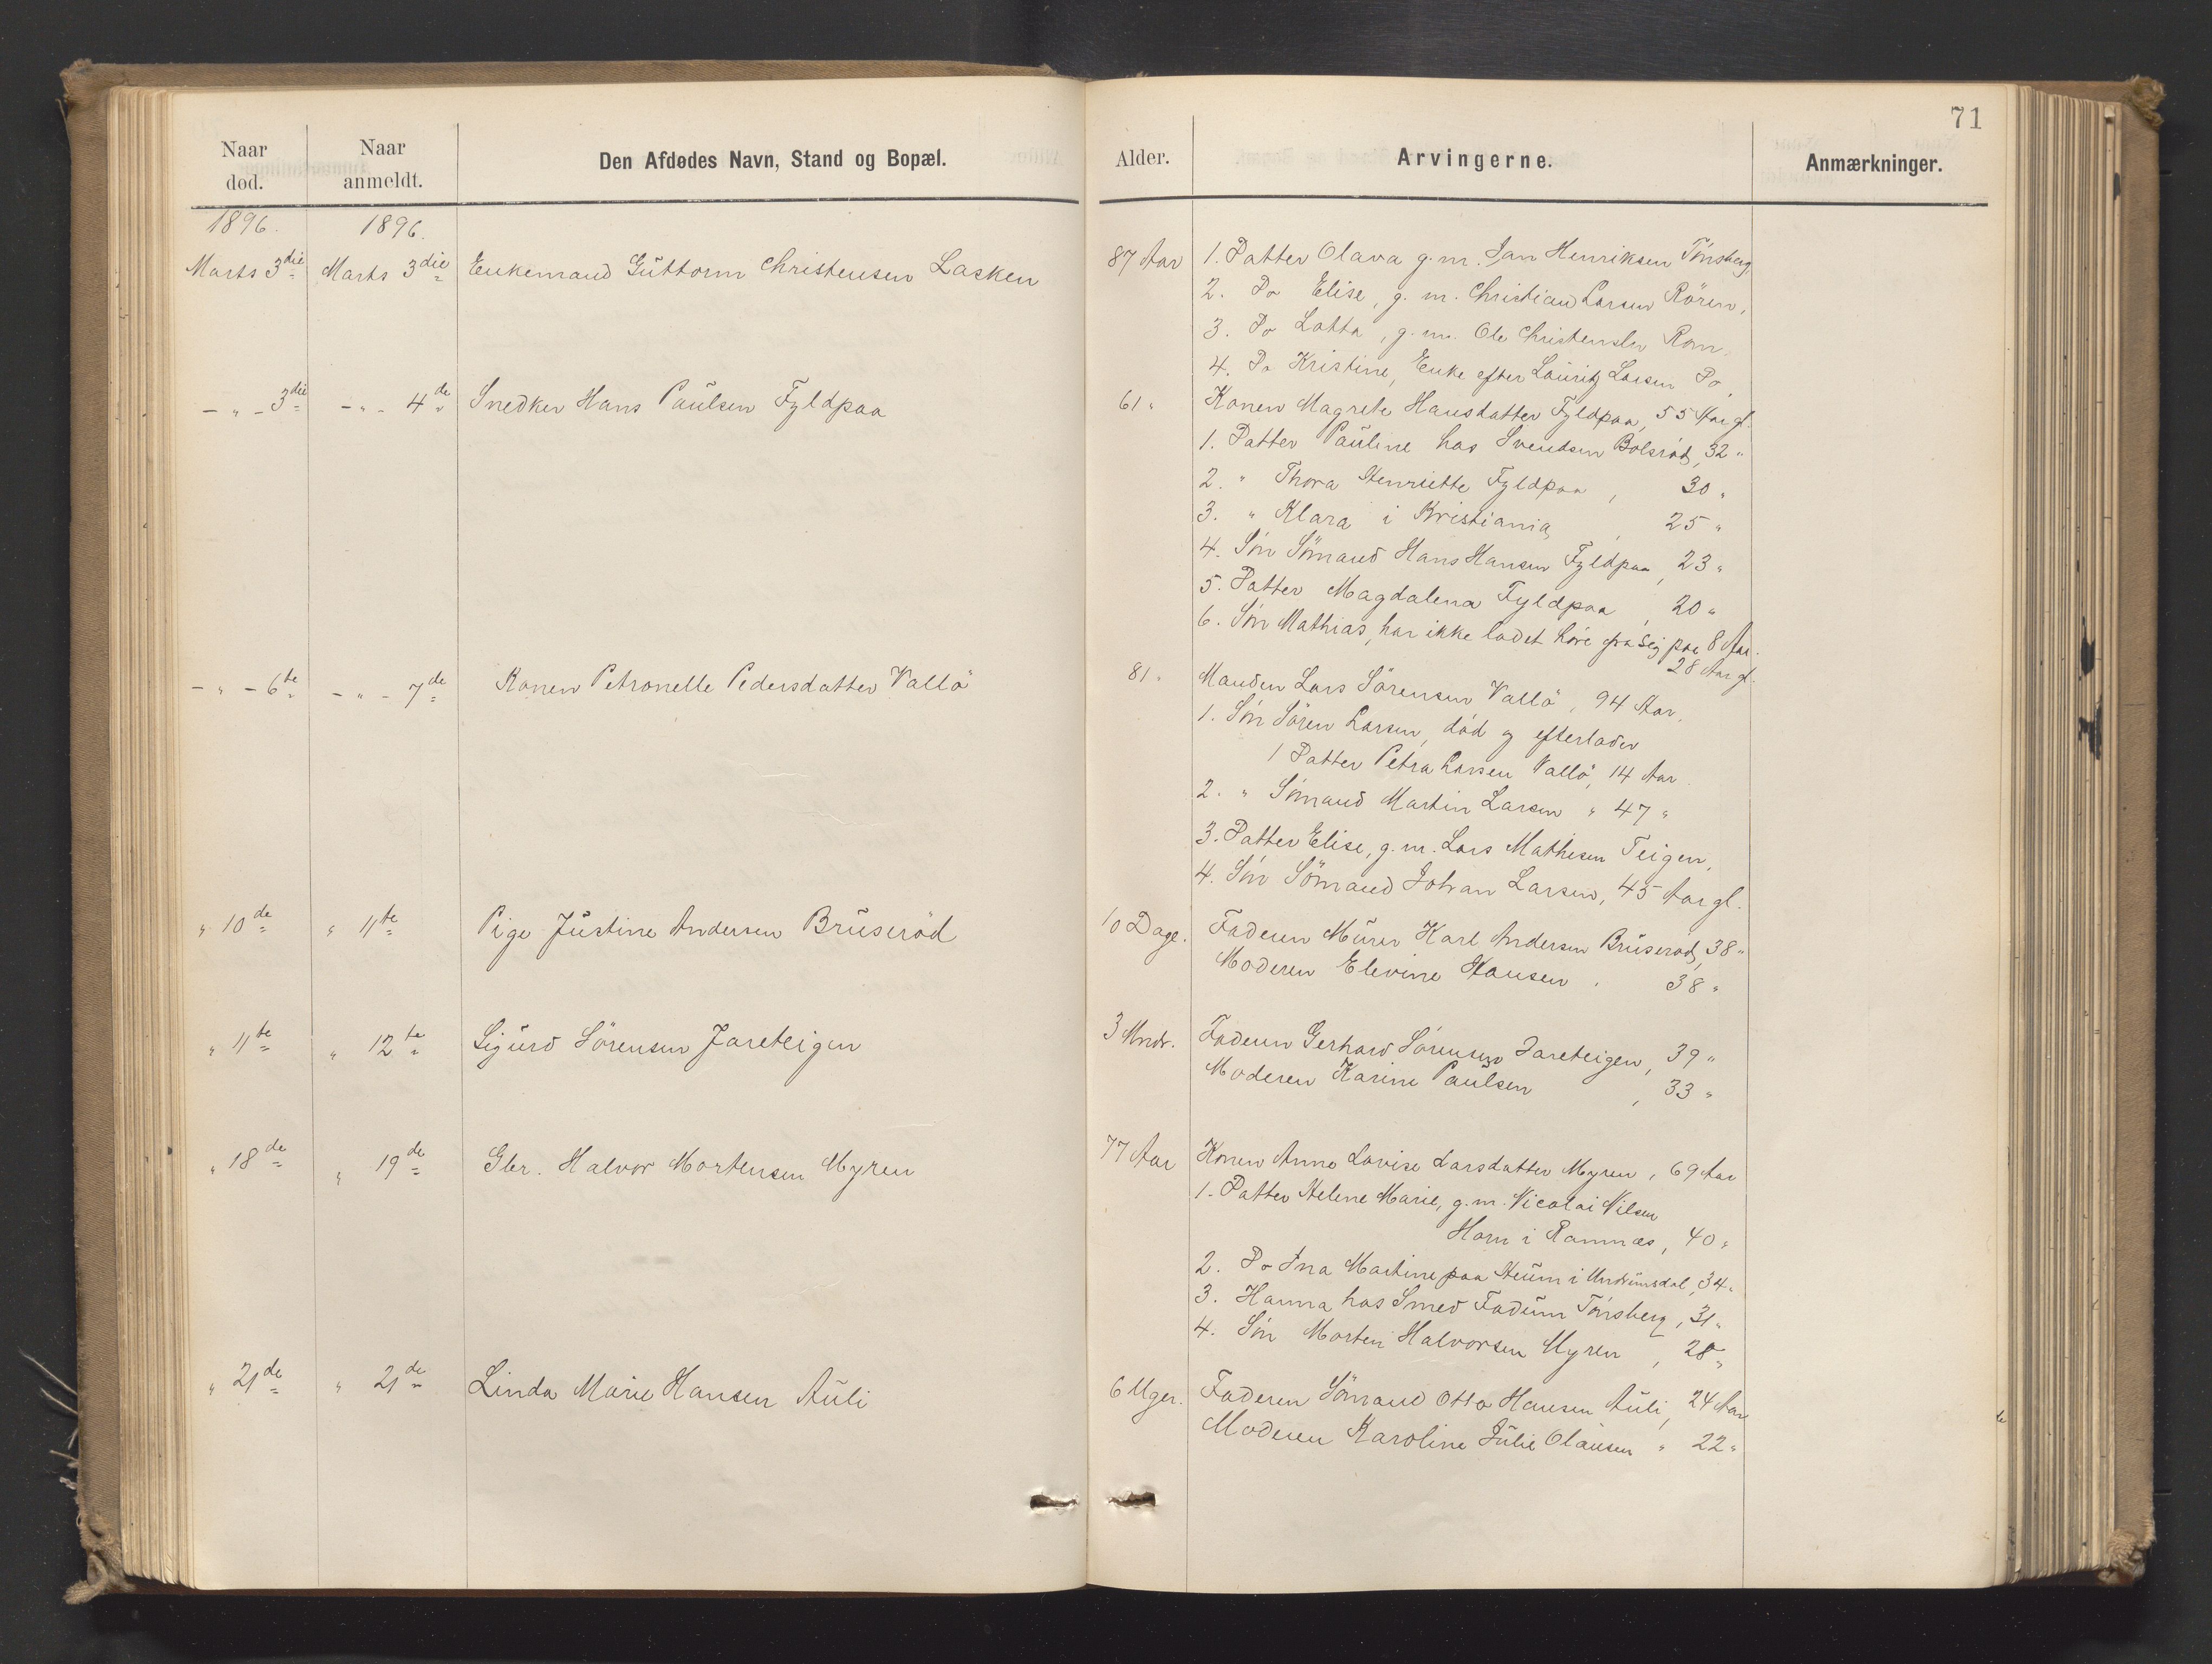 71
Naar død.
Naar anmeldt.
Den Afdødes Navn, Stand og Bopæl.
Alder.
Arvingerne.
Anmærkninger.
1896. 1896.
Marts 3die Marts 3die Enkemand Guttorm Christensen Lasken 87 Aar
1. Datter Olava g. m. Jan Henriksen Tönsberg,
2. Do Elise, g. m. Christian Larsen Rören,
3. Do Lotta, g. m. Ole Christensen Rom,
4. Do Kristine, Enke efter Lauritz Larsen Do,
- " - 3die - " - 4de Snedker Hans Paulsen Fyldpaa 61 "
Konen Magrete Hansdatter Fyldpaa, 55 Aar gl.
1. Datter Pauline hos Svendsen Bolsröd, 32 "
2. " Thora Henriette Fyldpaa, 30 "
3. " Klara i Kristiania, 25 "
4. Sön Sömand Hans Hansen Fyldpaa, 23 "
5. Datter Magdalena Fyldpaa, 20 "
6. Sön Mathias, har ikke ladet höre fra sig paa 8 Aar.
28 Aar gl.
- " - 6te - " - 7de Konen Petronelle Pedersdatter Vallö 81 "
Manden Lars Sörensen Vallö, 94 Aar,
1. Sön Sören Larsen, död og efterlader
1 Datter Petra Larsen Vallö, 14 Aar
2. " Sömand Martin Larsen " 47 "
3. Datter Elise, g. m. Lars Mathisen Teigen,
4. Sön Sömand Johan Larsen, 45 Aar gl.
" 10de " 11te Pige Justine Andersen Bruseröd 10 Dage.
Faderen Murer Karl Andersen Bruseröd, 38 "
Moderen Elevine Hansen, 38 "
" 11te " 12te Sigurd Sörensen Jareteigen 3 Mndr.
Faderen Gerhard Sörensen Jareteigen, 39 "
Moderen Karine Paulsen, 33 "
" 18de " 19de Gbr. Halvor Mortensen Myren 77 Aar
Konen Anne Lovise Larsdatter Myren, 69 Aar
1. Datter Helene Marie, g. m. Nicolai Nilsen
Horn i Ramnæs, 40 "
2. Do Ina Martine paa Heum i Undrumsdal, 34 "
3. Hanna hos Smed Fadum Tönsberg, 31 "
4. Sön Morten Halvorsen Myren, 28 "
" 21de " 21de Linda Marie Hansen Auli 6 Uger.
Faderen Sömand Otto Hansen Auli, 24 Aar
Moderen Karoline Julie Olausen " 22 "